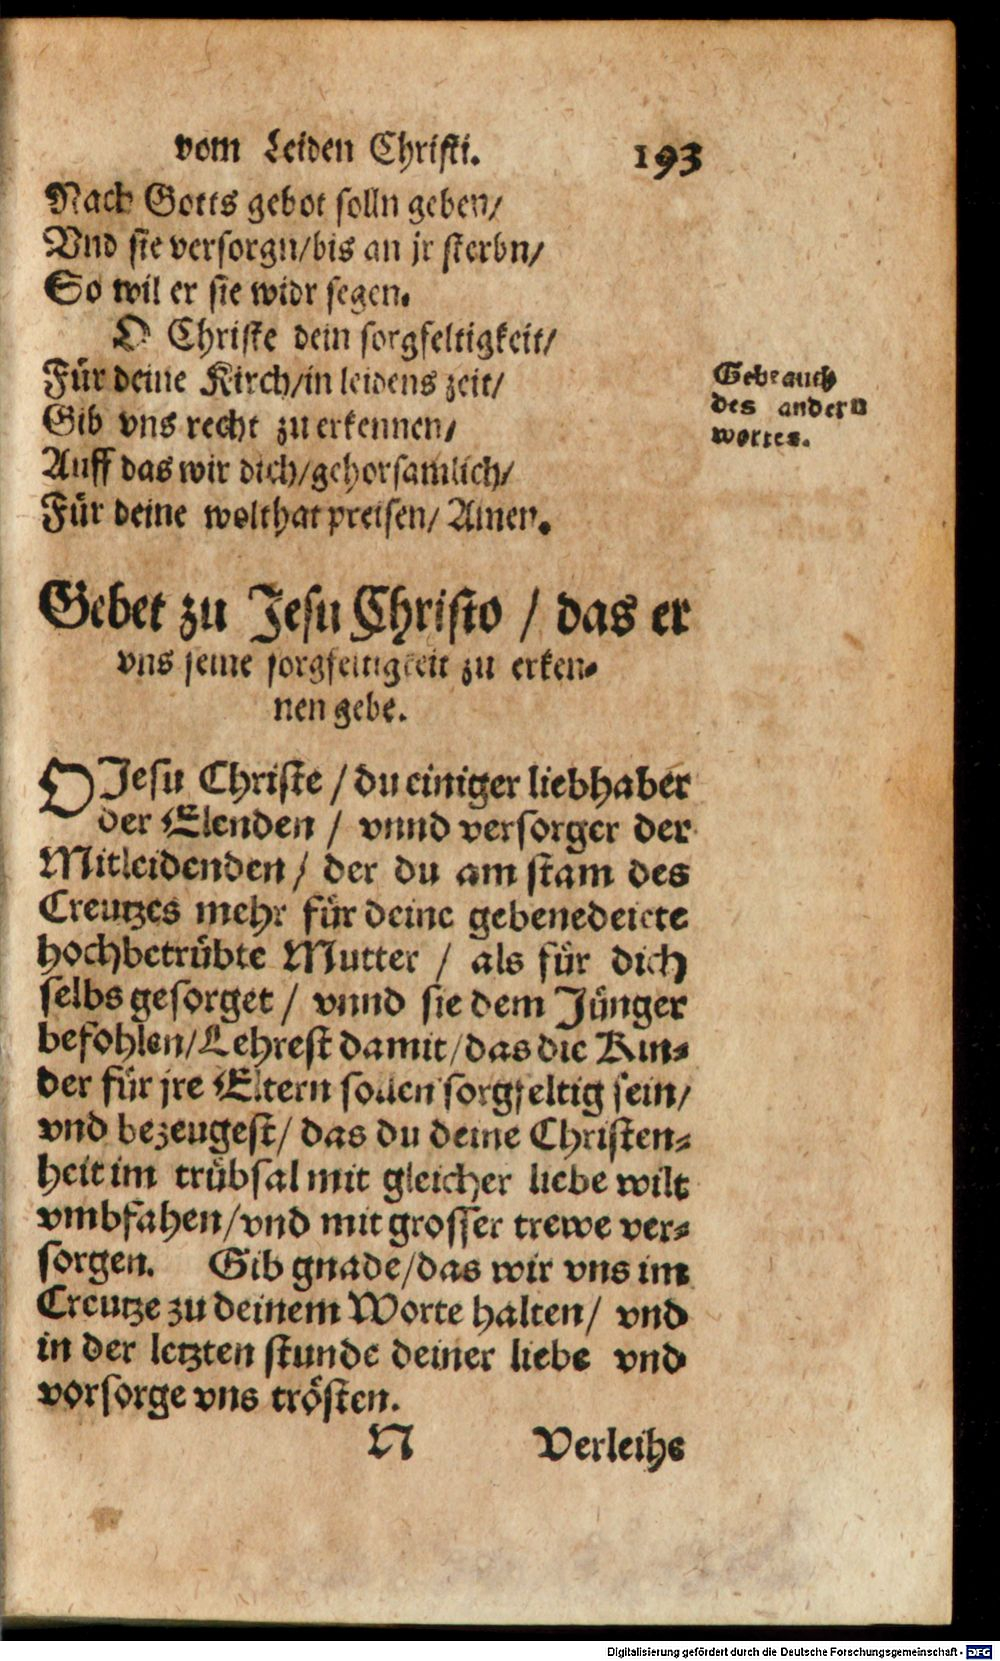 vom Leiden Christi. 193
Nach Gotts gebot solln geben/
Vnd sie versorgn/bis an jr sterbn/
So wil er sie widr segen.
O Christe dein sorgfeltigkeit/
Für deine Kirch/in leidens zeit/
Gib vns recht zu erkennen/
Auff das wir dich/gehorsamlich/
Für deine wolthat preisen/ Amen.
Gebrauch
des andern
wortes.
Gebet zu Jesu Christo / das er
vns seine sorgfeltigkeit zu erken-
nen gebe.
O Jesu Christe / du einiger liebhaber
der Elenden / vnnd versorger der
Mitleidenden / der du am stam des
Creutzes mehr für deine gebenedeiete
hochbetrübte Mutter / als für dich
selbs gesorget / vnnd sie dem Jünger
befohlen/Lehrest damit/das die Kin-
der für jre Eltern sollen sorgfeltig sein/
vnd bezeugest/ das du deine Christen-
heit im trübsal mit gleicher liebe wilt
vmbfahen/vnd mit grosser trewe ver-
sorgen. Gib gnade/das wir vns im
Creutze zu deinem Worte halten/ vnd
in der letzten stunde deiner liebe vnd
vorsorge vns trösten.
N Verleihe
Digitalisierung gefördert durch die Deutsche Forschungsgemeinschaft - DFG